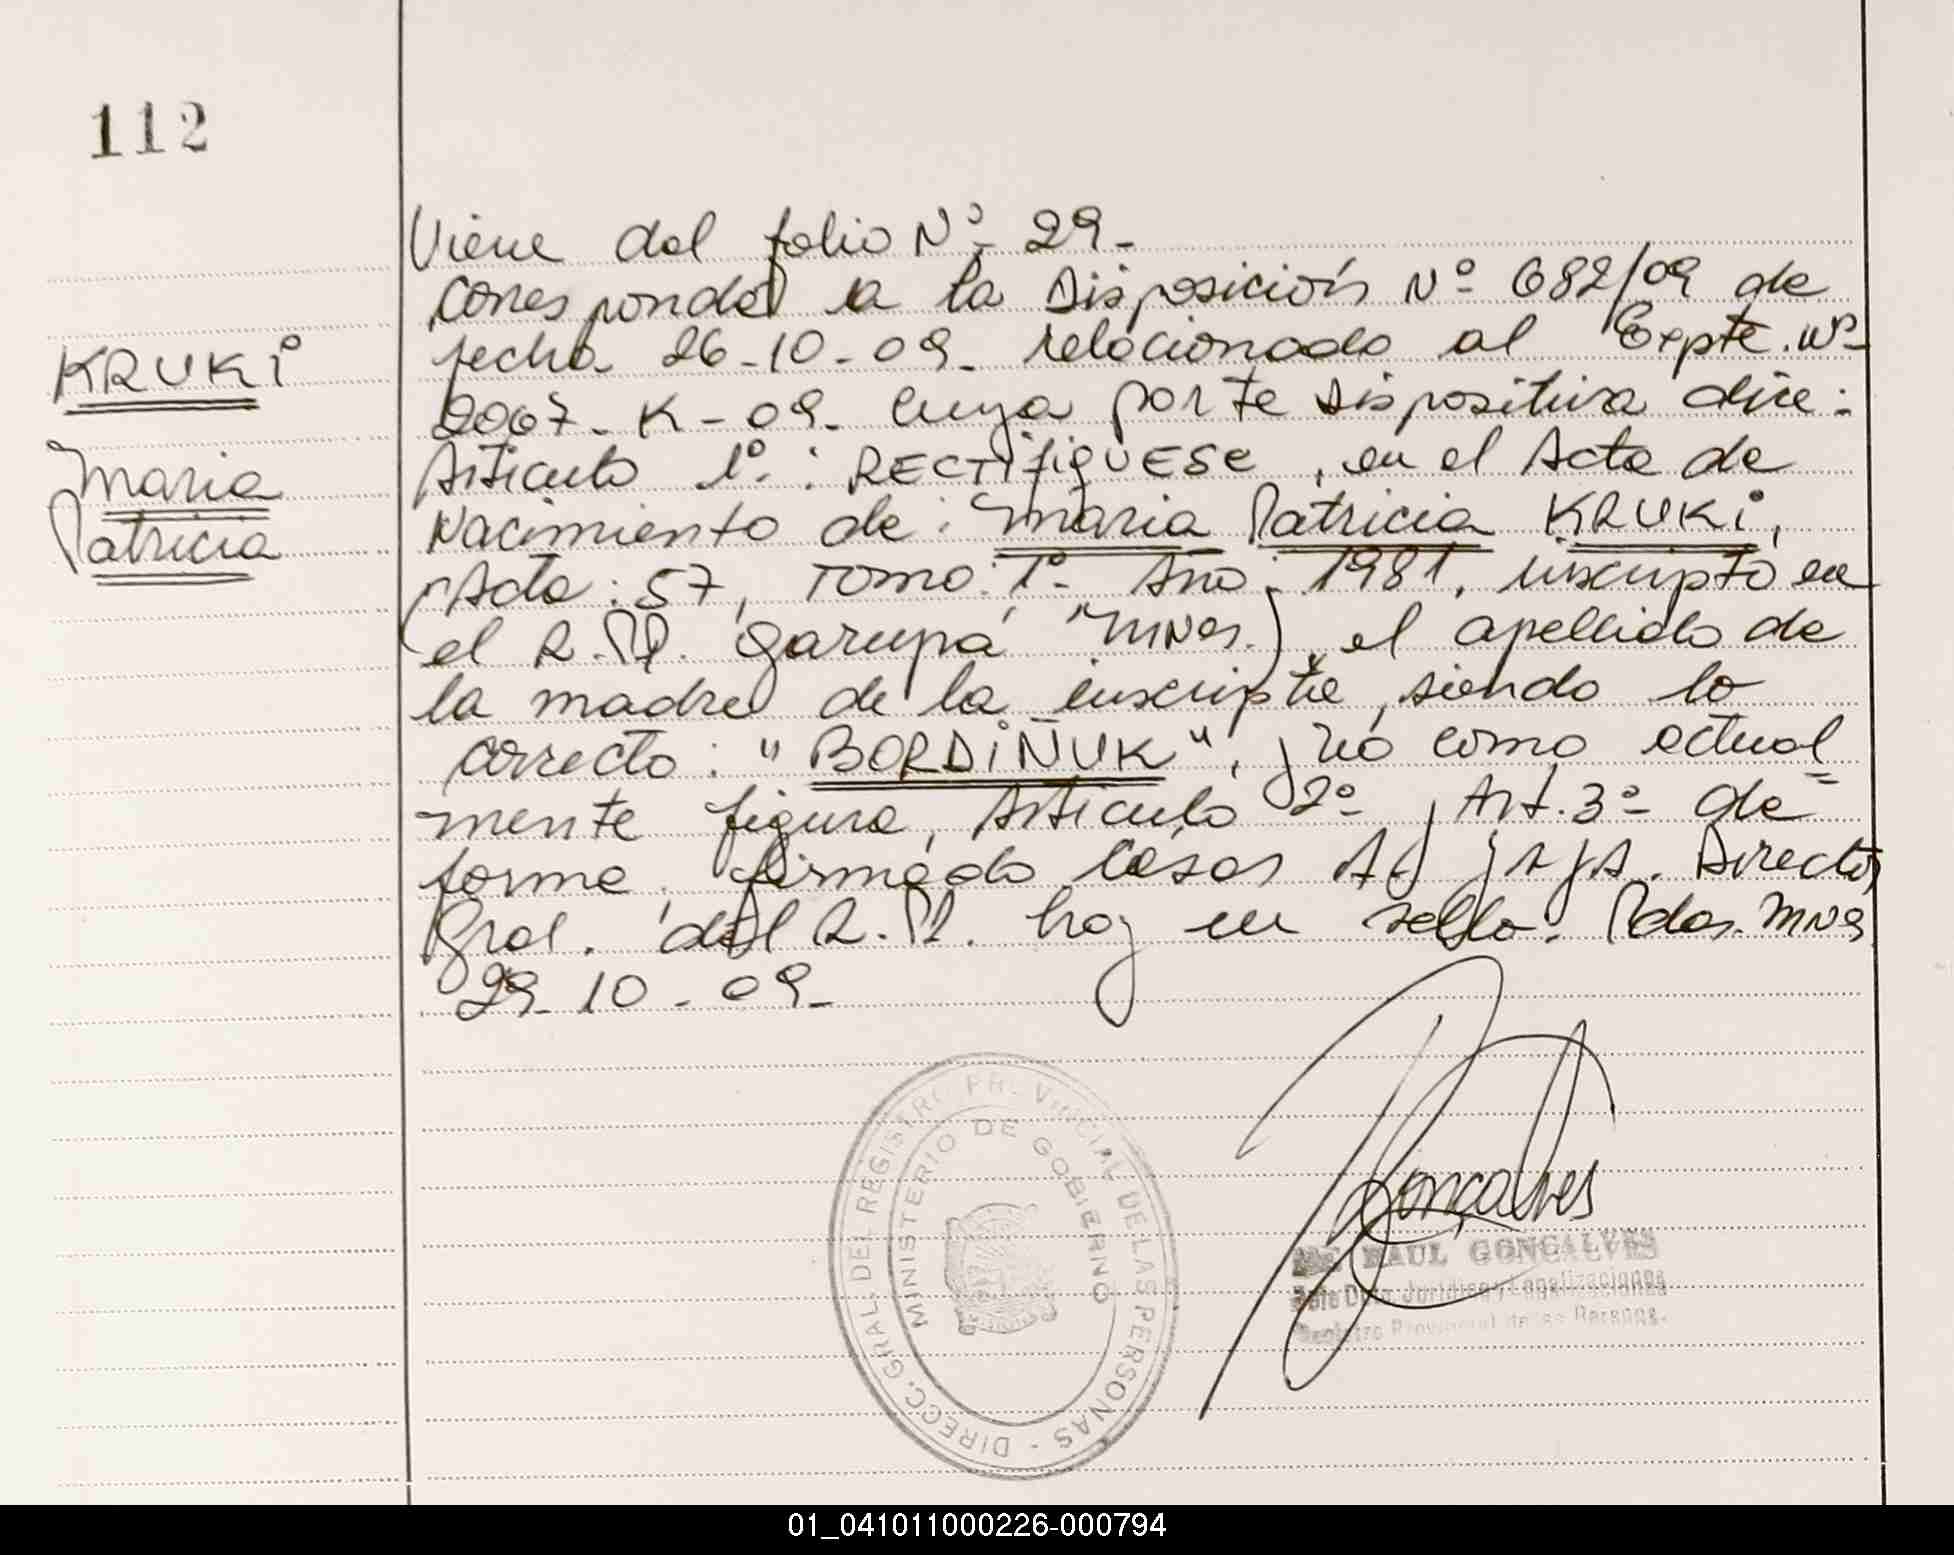 112
KRUKi
Maria
Patricia
Viene del folio Nº 29-
Corresponde a la Disposición Nº 682/09 de
fecha 26-10-09- relacionado al Expte. Nº
2067- K-09- cuya parte dispositiva dice:
Articulo 1º: RECTifiQUESE, en el Acta de
Nacimiento de: Maria Patricia KRUKi,
(Acta: 57, Tomo: 1º- Año: 1981, inscripto en
el R.P.P. Garupá Mnes.), el apellido de
la madre de la inscripta, siendo lo
correcto: "BORDiNUK", y no como actual=
mente figura, Articulo 2º y Art. 3º- de
forma, firmado Cesar A. Director
Gral. del R.P. hay un sello. Pdas. Mnes
29-10-09-
DIRECC. GRAL. DEL REGISTRO PROVINCIAL DE LAS PERSONAS -
MINISTERIO DE GOBIERNO
Goncalves
RAUL GONCALVES
Jefe Dpto. Jurídico y Legalizaciones
Registro Provincial de las Personas.
01_041011000226-000794